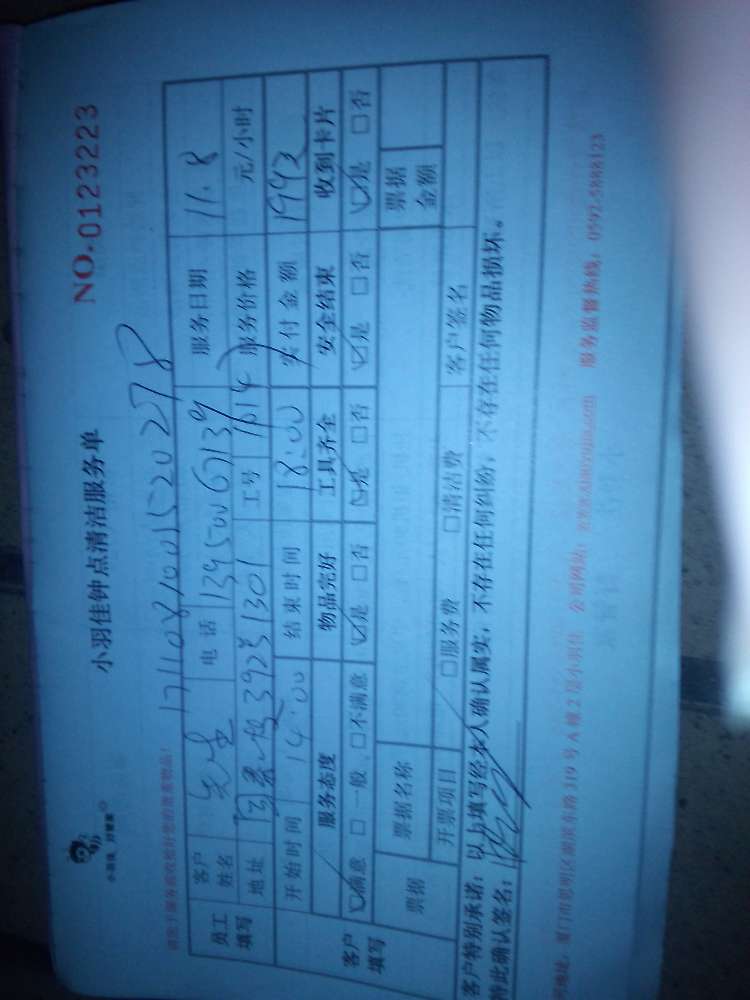 小羽佳 好管家
小羽佳钟点清洁服务单
NO.0123223
171108100152027 8
员工填写 客户姓名 先生 电话 13950067139 服务日期 11.8
地址 3925 1301 工号 1614 服务价格 元/小时
开始时间 14:00 结束时间 18:00 实付金额 1993
客户填写 服务态度 物品完好 工具齐全 安全结束 收到卡片
☑满意 □一般 □不满意 ☑是 □否 ☑是 □否 ☑是 □否 ☑是 □否
票据 票据名称 票据金额
开票项目 □服务费 □清洁费 客户签名
客户特别承诺：以上填写经本人确认属实，不存在任何纠纷，不存在任何物品损坏。
特此确认签名：
地址：厦门市思明区湖滨东路319号A幢2层小羽佳 公司网站： 服务监督热线：0592-5888123